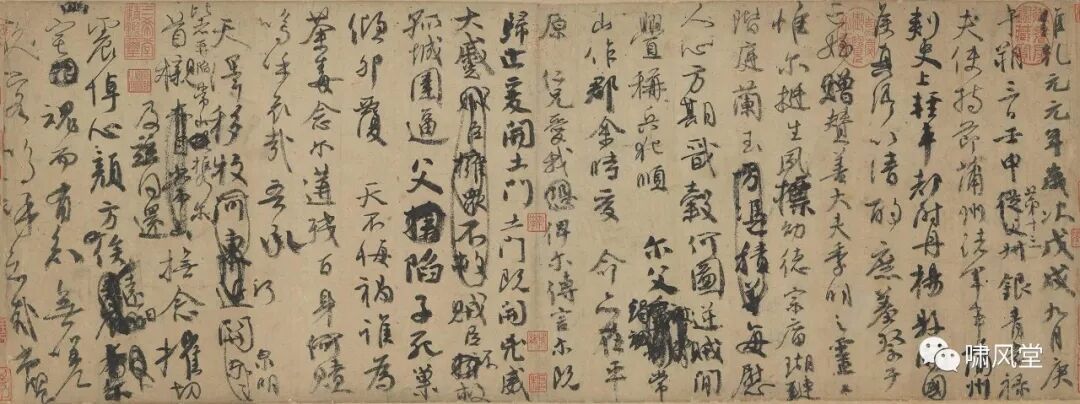 維乾元元年歲次戊戌九月庚
午朔三日壬申第十三從父叔銀青光祿
夫使持節蒲州諸軍事蒲州
刺史上輕車都尉丹楊縣開國
侯真卿以清酌庶羞祭于
亡姪贈贊善大夫季明之靈曰
惟爾挺生夙標幼德宗廟瑚璉
階庭蘭玉方憑積善每慰
人心方期戩穀何圖逆賊閒
釁稱兵犯順 爾父竭誠常
山作郡余時受命亦在平
原 仁兄愛我俾爾傳言爾既
歸止爰開土門土門既開凶威
大蹙賊臣擁眾不救賊臣不救
孤城圍逼父陷子死巢
傾卵覆 天不悔禍誰為
荼毒念爾遘殘百身何贖
嗚呼哀哉吾承
天澤移牧河東近河關泉明
比者再陷常山攜爾
首櫬及茲同還撫念摧切
震悼心顏方俟遠日
爾宅魂而有知無嗟
久客嗚呼哀哉尚饗
啸风堂